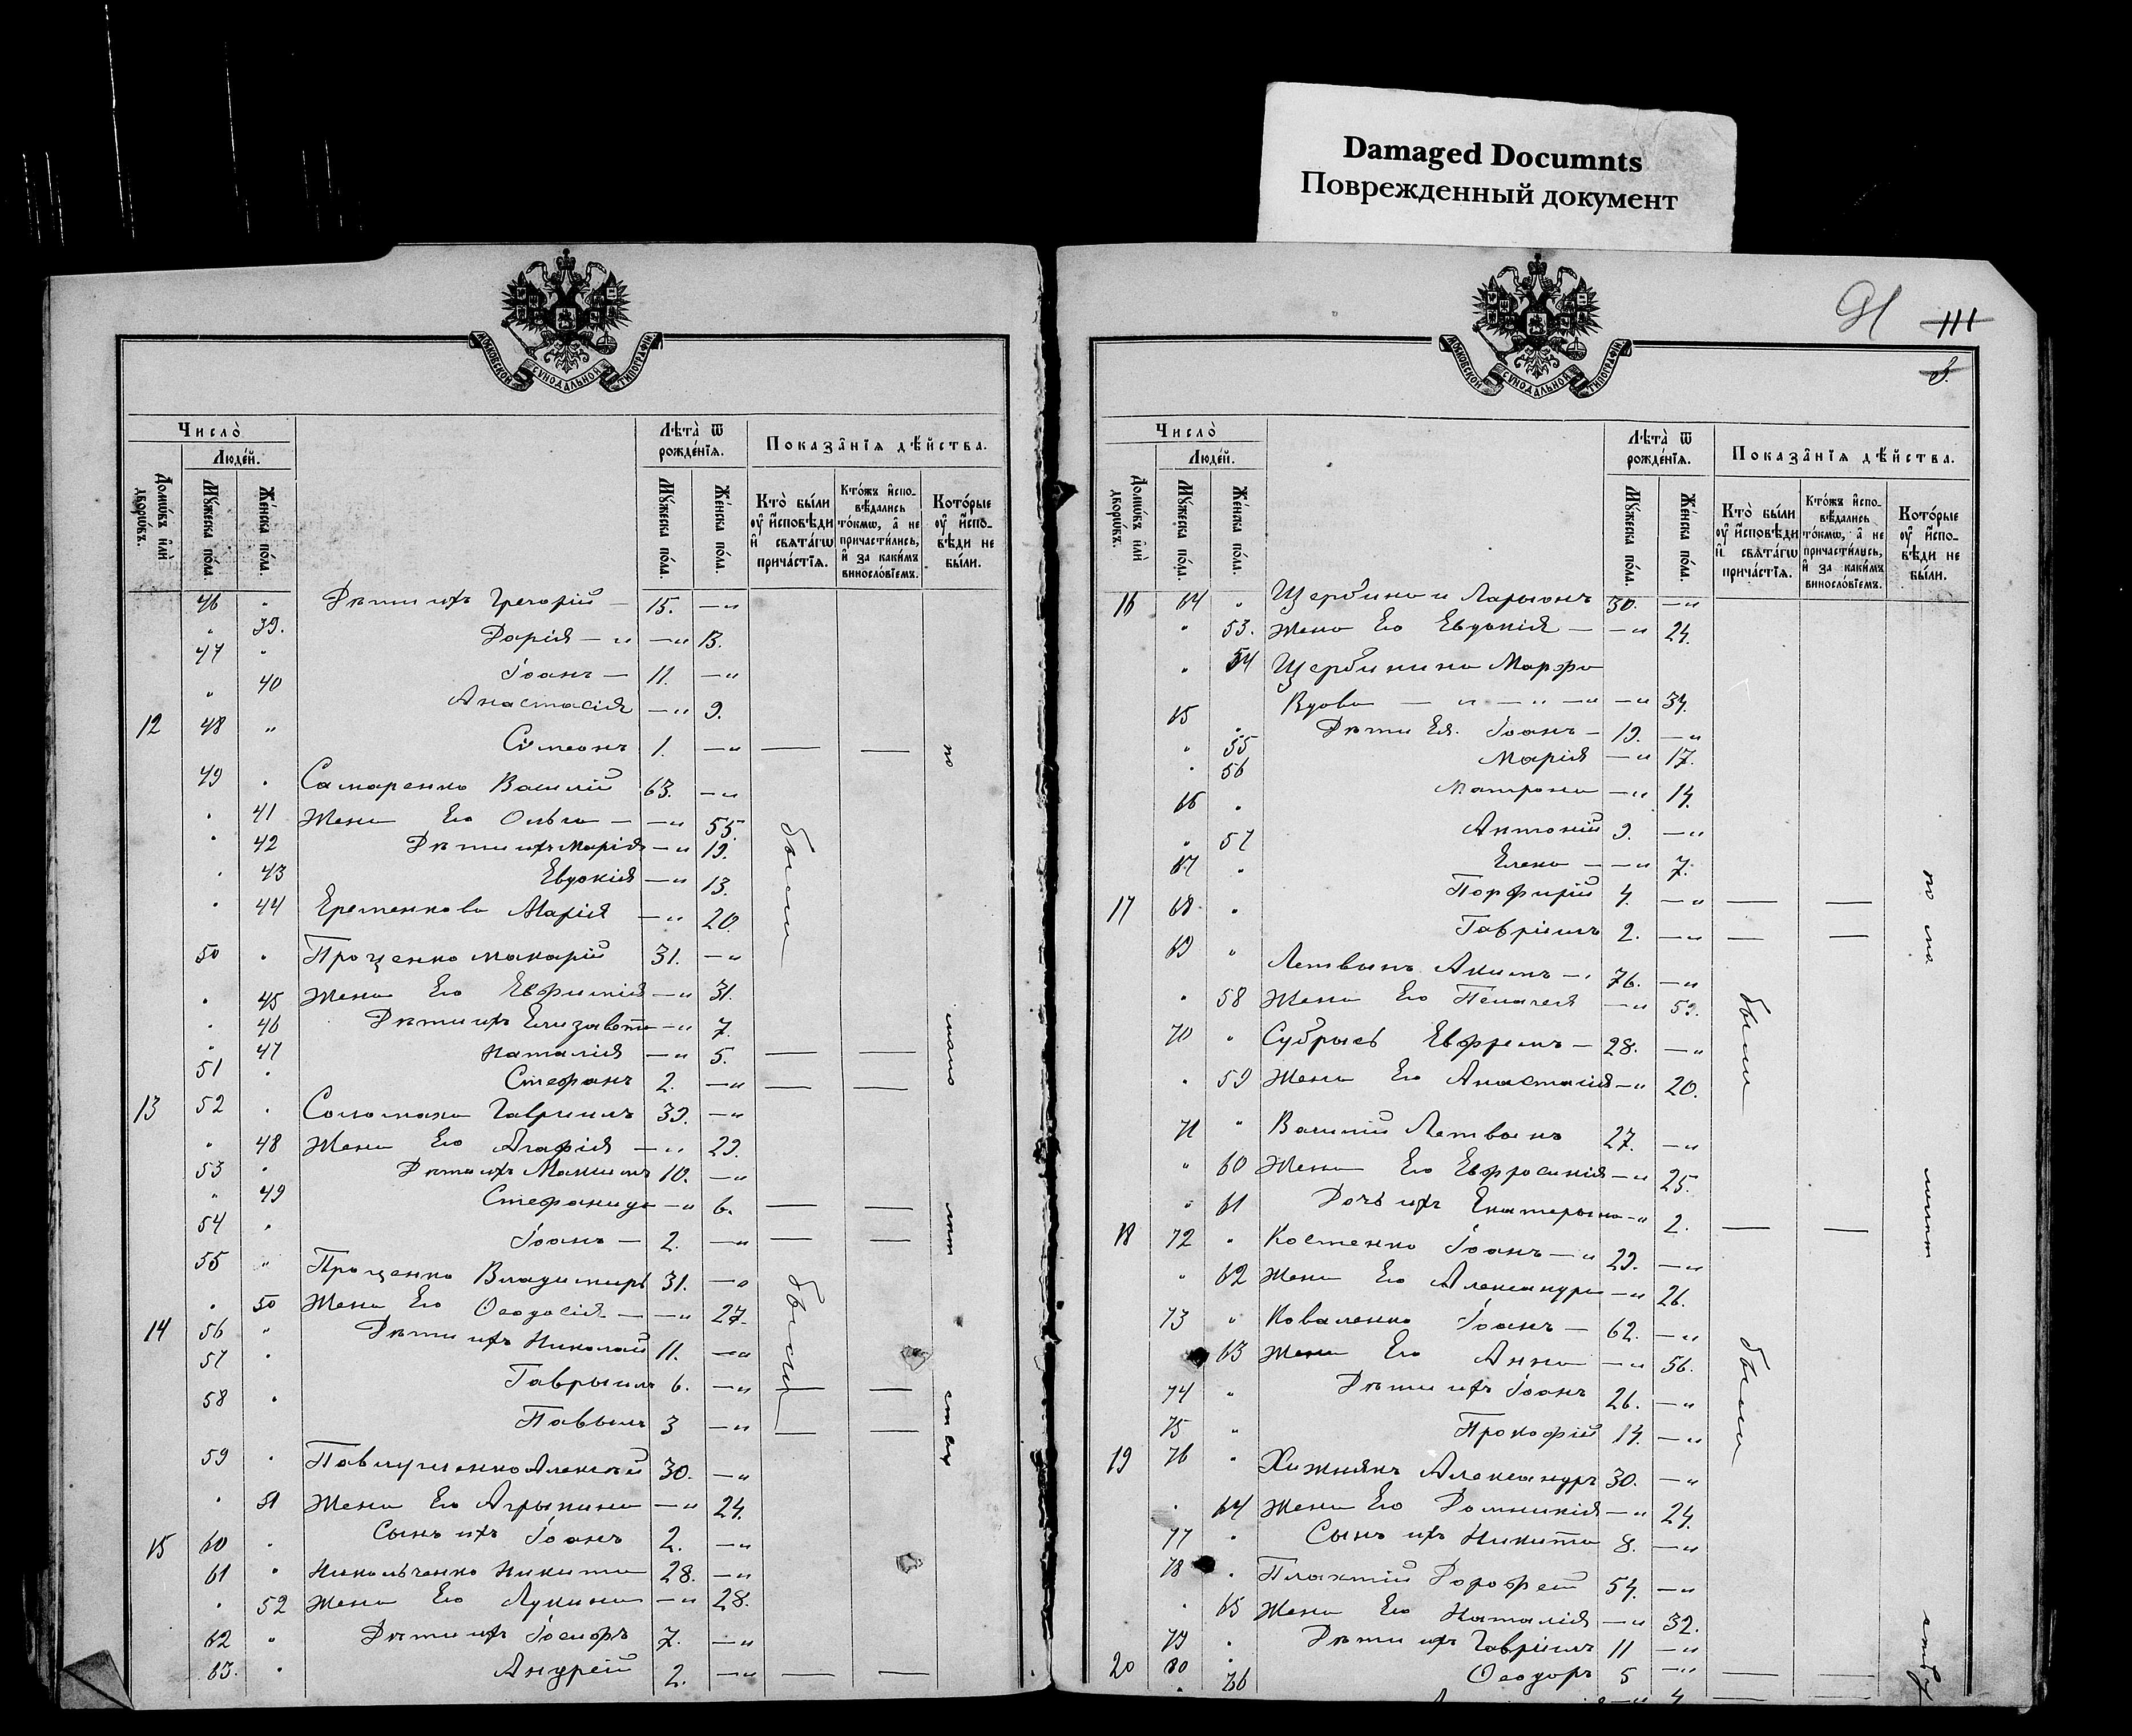 Damaged Documnts
Поврежденный документ
91 111
3.
МОСКОВСКОЙ СУНОДАЛЬНОЙ ТИПОГРАФІИ
Число̀
Люде́й.
Домѡ́въ и҆лѝ дворѡ́въ.
Мꙋ́жеска по́ла.
Же́нска по́ла.
Лѣ́та ѿ рожде́нїѧ.
Мꙋ́жеска по́ла.
Же́нска по́ла.
Показа̑нїѧ дѣ́йства.
Кто̀ бы́ли ᲂу҆ и҆сповѣ́ди и҆ свѧта́гѡ прича́стїѧ.
Кто́жъ и҆сповѣ́дались то́кмѡ, а҆ не причасти́лись, и҆ за каки́мъ винослѡ́вїемъ.
Кото́рые ᲂу҆ и҆сповѣ́ди не бы́ли.
46 „ Дѣти ихъ Григорій — 15. —„
„ 39. Дарія — „ —„ 13.
47 „ Іоанъ — 11. —„
„ 40 Анастасія —„ 9.
12 48 „ Сѵмеонъ 1. —„ — — по
49 „ Самаренко Василій 63. —„
„ 41 Жена Его Ольга — —„ 55.
„ 42 Дѣти ихъ Марія —„ 19.
„ 43 Евдокія —„ 13.
„ 44 Еременкова Марія —„ 20.
были
50 „ Проценко Макарій 31. —„
„ 45 Жена Его Евфимія —„ 31.
„ 46 Дѣти ихъ Елизавета —„ 7.
„ 47 Наталія —„ 5. — — мало
51 „ Стефанъ 2. —„ — —
13 52 „ Соломаха Гавриилъ 39. —„
„ 48 Жена Его Агафія — „ 29.
53 „ Дѣти ихъ Максимъ 10. —„
„ 49 Стефанида —„ 6. — — лѣт
54 „ Іоанъ — 2. —„ — —
55 „ Проценко Владимиръ 31. —„
„ 50 Жена Его Ѳеодосія — —„ 27.
14 56 „ Дѣти ихъ Николай 11. —„
были
57 „ Гаврыилъ 6. —„ — —
58 „ Павылъ 3 —„ — — ству
59 „ Павлушенко Алексѣй 30. —„
„ 51 Жена Его Агрыпина —„ 24.
15 60 „ Сынъ ихъ Іоанъ 2. —„
61 „ Никольченко Никита 28. —„
„ 52 Жена Его Лукина —„ 28.
62 „ Дѣти ихъ Іосифъ 7. —„
63. „ Андрей 2. —„ — —
Число̀
Люде́й.
Домѡ́въ и҆лѝ дворѡ́въ.
Мꙋ́жеска по́ла.
Же́нска по́ла.
Лѣ́та ѿ рожде́нїѧ.
Мꙋ́жеска по́ла.
Же́нска по́ла.
МОСКОВСКОЙ СУНОДАЛЬНОЙ ТИПОГРАФІИ
Показа̑нїѧ дѣ́йства.
Кто̀ бы́ли ᲂу҆ и҆сповѣ́ди и҆ свѧта́гѡ прича́стїѧ.
Кто́жъ и҆сповѣ́дались то́кмѡ, а҆ не причасти́лись, и҆ за каки́мъ винослѡ́вїемъ.
Кото́рые ᲂу҆ и҆сповѣ́ди не бы́ли.
16 64 „ Щербина Ларыонъ 30. —„
„ 53. Жена Его Евдокія — —„ 24.
„ 54 Щербинина Марфа
Вдова — „ — „ —„ —„ 34.
65 „ Дѣти Ея. Іоанъ — 19. —„
„ 55 Марія —„ 17.
„ 56 Матрона —„ 14.
66 „ Антоній 9. —„
„ 57 Елена — —„ 7.
67 „ Порфирій 4. —„ — — по ма
17 68 „ Гавріилъ 2. —„ — —
69 „ Летвынъ Акимъ — 76. —„
„ 58 Жена Его Пелагея —„ 59.
были
70 „ Субрысь Евфремъ — 28. —„
„ 59 Жена Его Анастасія —„ 20.
71 „ Василій Летвынъ 27. —„
„ 60 Жена Его Евфросинія —„ 25.
„ 61 Дочь ихъ Екатерына —„ 2. — —
18 72 „ Костенко Іоанъ — „ 29. —„
„ 62 Жена Его Александра —„ 26.
73 „ Коваленко Іоанъ — 62. —„
„ 63 Жена Его Анна —„ 56.
были
74 „ Дѣти ихъ Іоанъ 26. —„
75 „ Прокофій 14. —„
19 76 „ Хижнякъ Александръ 30. —„
„ 64 Жена Его Домникія —„ 24.
77 „ Сынъ ихъ Никита 8. —„
78 „ Плахтій Дорофей 54. —„
„ 65 Жена Его Наталія —„ 32.
79 „ Дѣти ихъ Гавріилъ 11 —„
20 80 „ Ѳеодоръ 5 —„ — —
„ 66